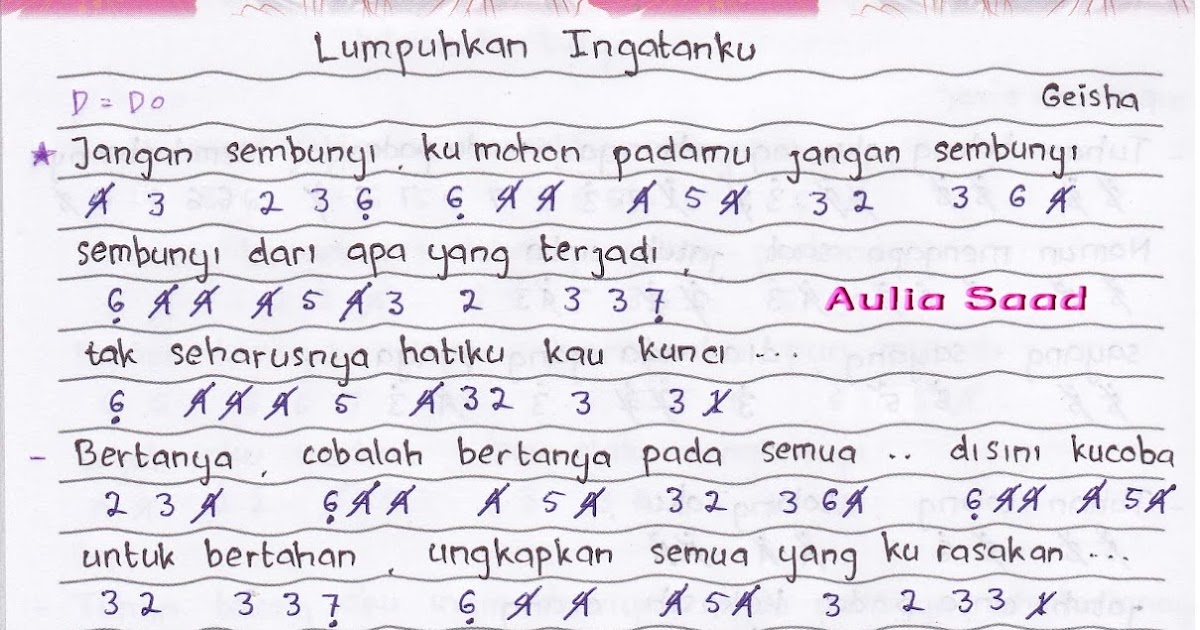 Lumpuhkan Ingatanku
D = Do
Geisha
★ Jangan sembunyi, ku mohon padamu jangan sembunyi
4̸ 3 2 3 6̣ 6̣ 4̸ 4̸ 4̸ 5 4̸ 3 2 3 6 4̸
sembunyi dari apa yang terjadi,
6̣ 4̸ 4̸ 4̸ 5 4̸ 3 2 3 3 7̣
Aulia Saad
tak seharusnya hatiku kau kunci ...
6̣ 4̸ 4̸ 4̸ 5 4̸ 3 2 3 3 1̸
- Bertanya, cobalah bertanya pada semua .. disini kucoba
2 3 4̸ 6̣ 4̸ 4̸ 4̸ 5 4̸ 3 2 3 6 4̸ 6̣ 4̸ 4̸ 4̸ 5 4̸
untuk bertahan, ungkapkan semua yang ku rasakan ...
3 2 3 3 7̣ 6̣ 4̸ 4̸ 4̸ 5 4̸ 3 2 3 3 1̸